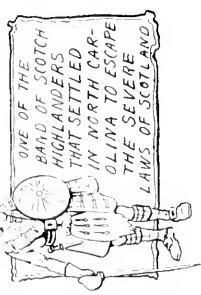 ONE OF THE
BAND OF SCOTCH
HIGHLANDERS
THAT SETTLED
IN NORTH CAR-
OLINA TO ESCAPE
THE SEVERE
LAWS OF SCOTLAND